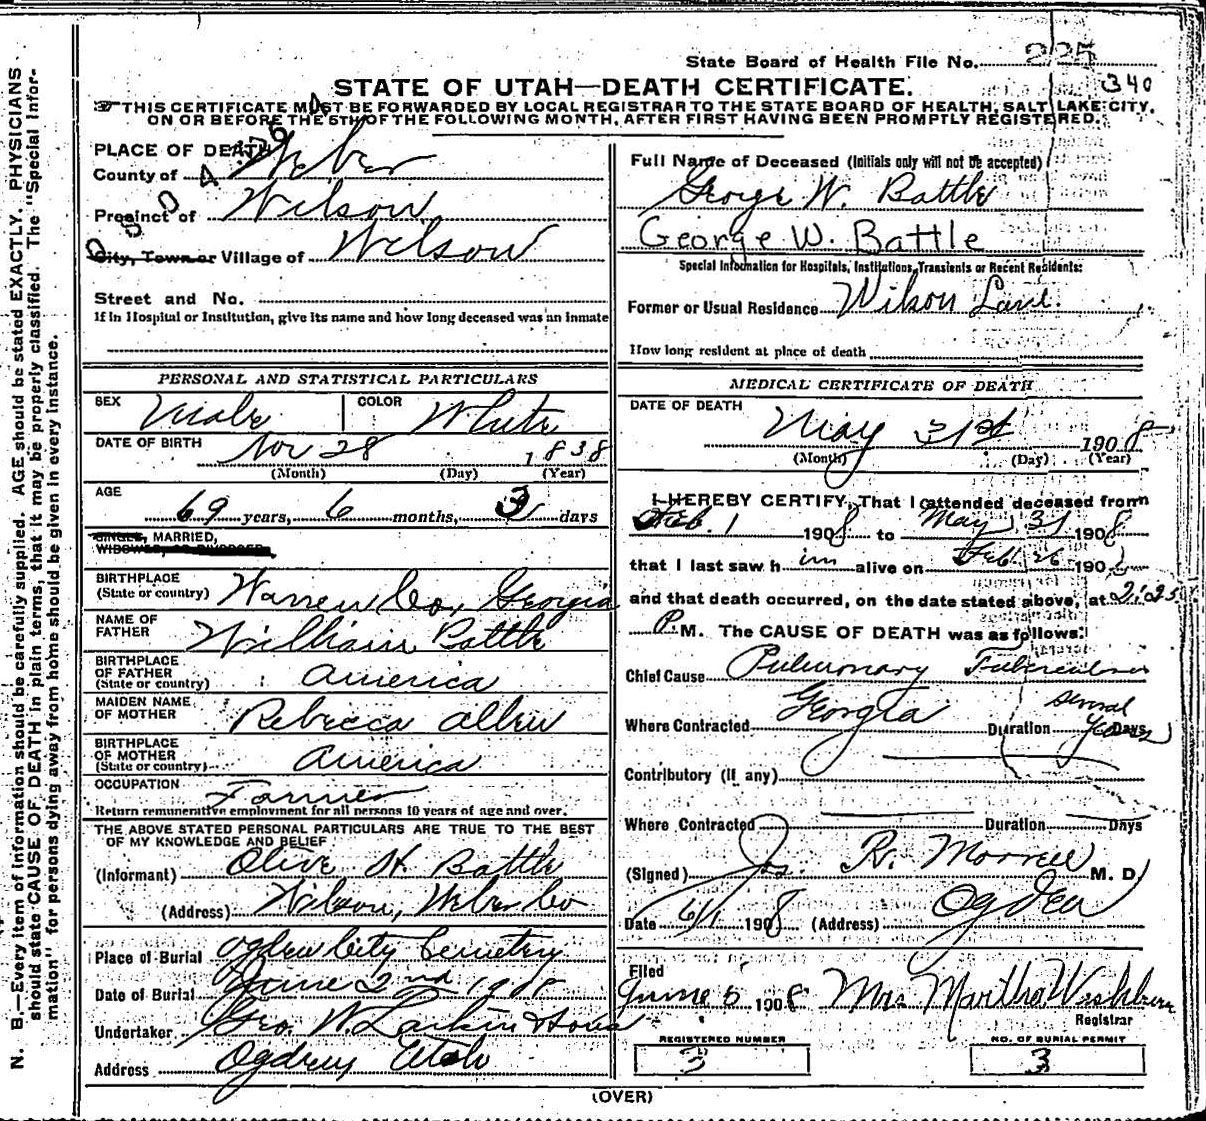 State Board of Health File No. 225
340
STATE OF UTAH—DEATH CERTIFICATE.
THIS CERTIFICATE MUST BE FORWARDED BY LOCAL REGISTRAR TO THE STATE BOARD OF HEALTH, SALT LAKE CITY,
ON OR BEFORE THE 5TH OF THE FOLLOWING MONTH, AFTER FIRST HAVING BEEN PROMPTLY REGISTERED.
N. B.—Every item of information should be carefully supplied. AGE should be stated EXACTLY. PHYSICIANS
should state CAUSE OF DEATH in plain terms, that it may be properly classified. The "Special Infor-
mation" for persons dying away from home should be given in every instance.
PLACE OF DEATH
County of Weber
Precinct of Wilson
City, Town or Village of Wilson
Street and No.
If in Hospital or Institution, give its name and how long deceased was an inmate
PERSONAL AND STATISTICAL PARTICULARS
SEX Male COLOR White
DATE OF BIRTH Nov 28 1838
(Month) (Day) (Year)
AGE
69 years, 6 months, 3 days
SINGLE, MARRIED,
WIDOWED, OR DIVORCED
BIRTHPLACE
(State or country) Warren Co, Georgia
NAME OF
FATHER William Battle
BIRTHPLACE
OF FATHER
(State or country) America
MAIDEN NAME
OF MOTHER Rebecca Allen
BIRTHPLACE
OF MOTHER
(State or country) America
OCCUPATION Farmer
Return remunerative employment for all persons 10 years of age and over.
THE ABOVE STATED PERSONAL PARTICULARS ARE TRUE TO THE BEST
OF MY KNOWLEDGE AND BELIEF
(Informant) Olive H. Battle
(Address) Wilson, Weber Co
Place of Burial Ogden City Cemetry
Date of Burial June 2nd 1908
Undertaker Geo. W. Larkin & Sons
Address Ogden, Utah
Full Name of Deceased (Initials only will not be accepted)
George W. Battle
George W. Battle
Special Information for Hospitals, Institutions, Transients or Recent Residents:
Former or Usual Residence Wilson Lane.
How long resident at place of death
MEDICAL CERTIFICATE OF DEATH
DATE OF DEATH
May 31st 1908
(Month) (Day) (Year)
I HEREBY CERTIFY, That I attended deceased from
Feb. 1 1908 to May 31 1908
that I last saw him alive on Feb. 26 190
and that death occurred, on the date stated above, at 2:25
P. M. The CAUSE OF DEATH was as follows:
Chief Cause Pulmonary Tuberculosis
Where Contracted Georgia Duration several years Days
Contributory (if any)
Where Contracted Duration Days
(Signed) Jos. R. Morrell M. D.
Date 6/1 1908 (Address) Ogden
Filed
June 5 1908 Mrs Martha Washburn
Registrar
REGISTERED NUMBER
3
NO. OF BURIAL PERMIT
3
(OVER)